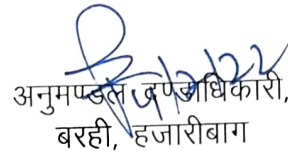 अनुमण्डल दण्डाधिकारी,
बरही, हजारीबाग